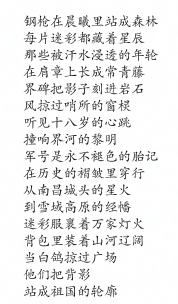 钢枪在晨曦里站成森林
每片迷彩都藏着星辰
那些被汗水浸透的年轮
在肩章上长成常青藤
界碑把影子刻进岩石
风掠过哨所的窗棂
听见十八岁的心跳
撞响界河的黎明
军号是永不褪色的胎记
在历史的褶皱里穿行
从南昌城头的星火
到雪域高原的经幡
迷彩服裹着万家灯火
背包里装着山河辽阔
当白鸽掠过广场
他们把背影
站成祖国的轮廓